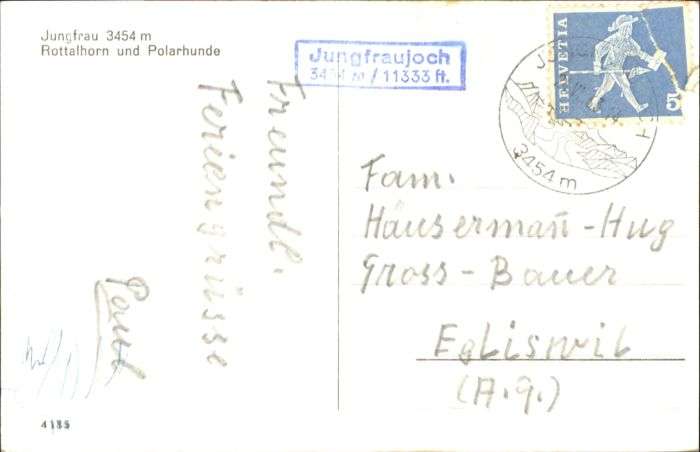 Jungfrau 3454 m
Rottalhorn und Polarhunde
Jungfraujoch
3454 m / 11333 ft.
HELVETIA
5
3454 m
Freundl.
Feriengrüsse
Paul
Fam.
Häusermañ-Hug
Gross-Bauer
Egliswil
(A.g.)
4185